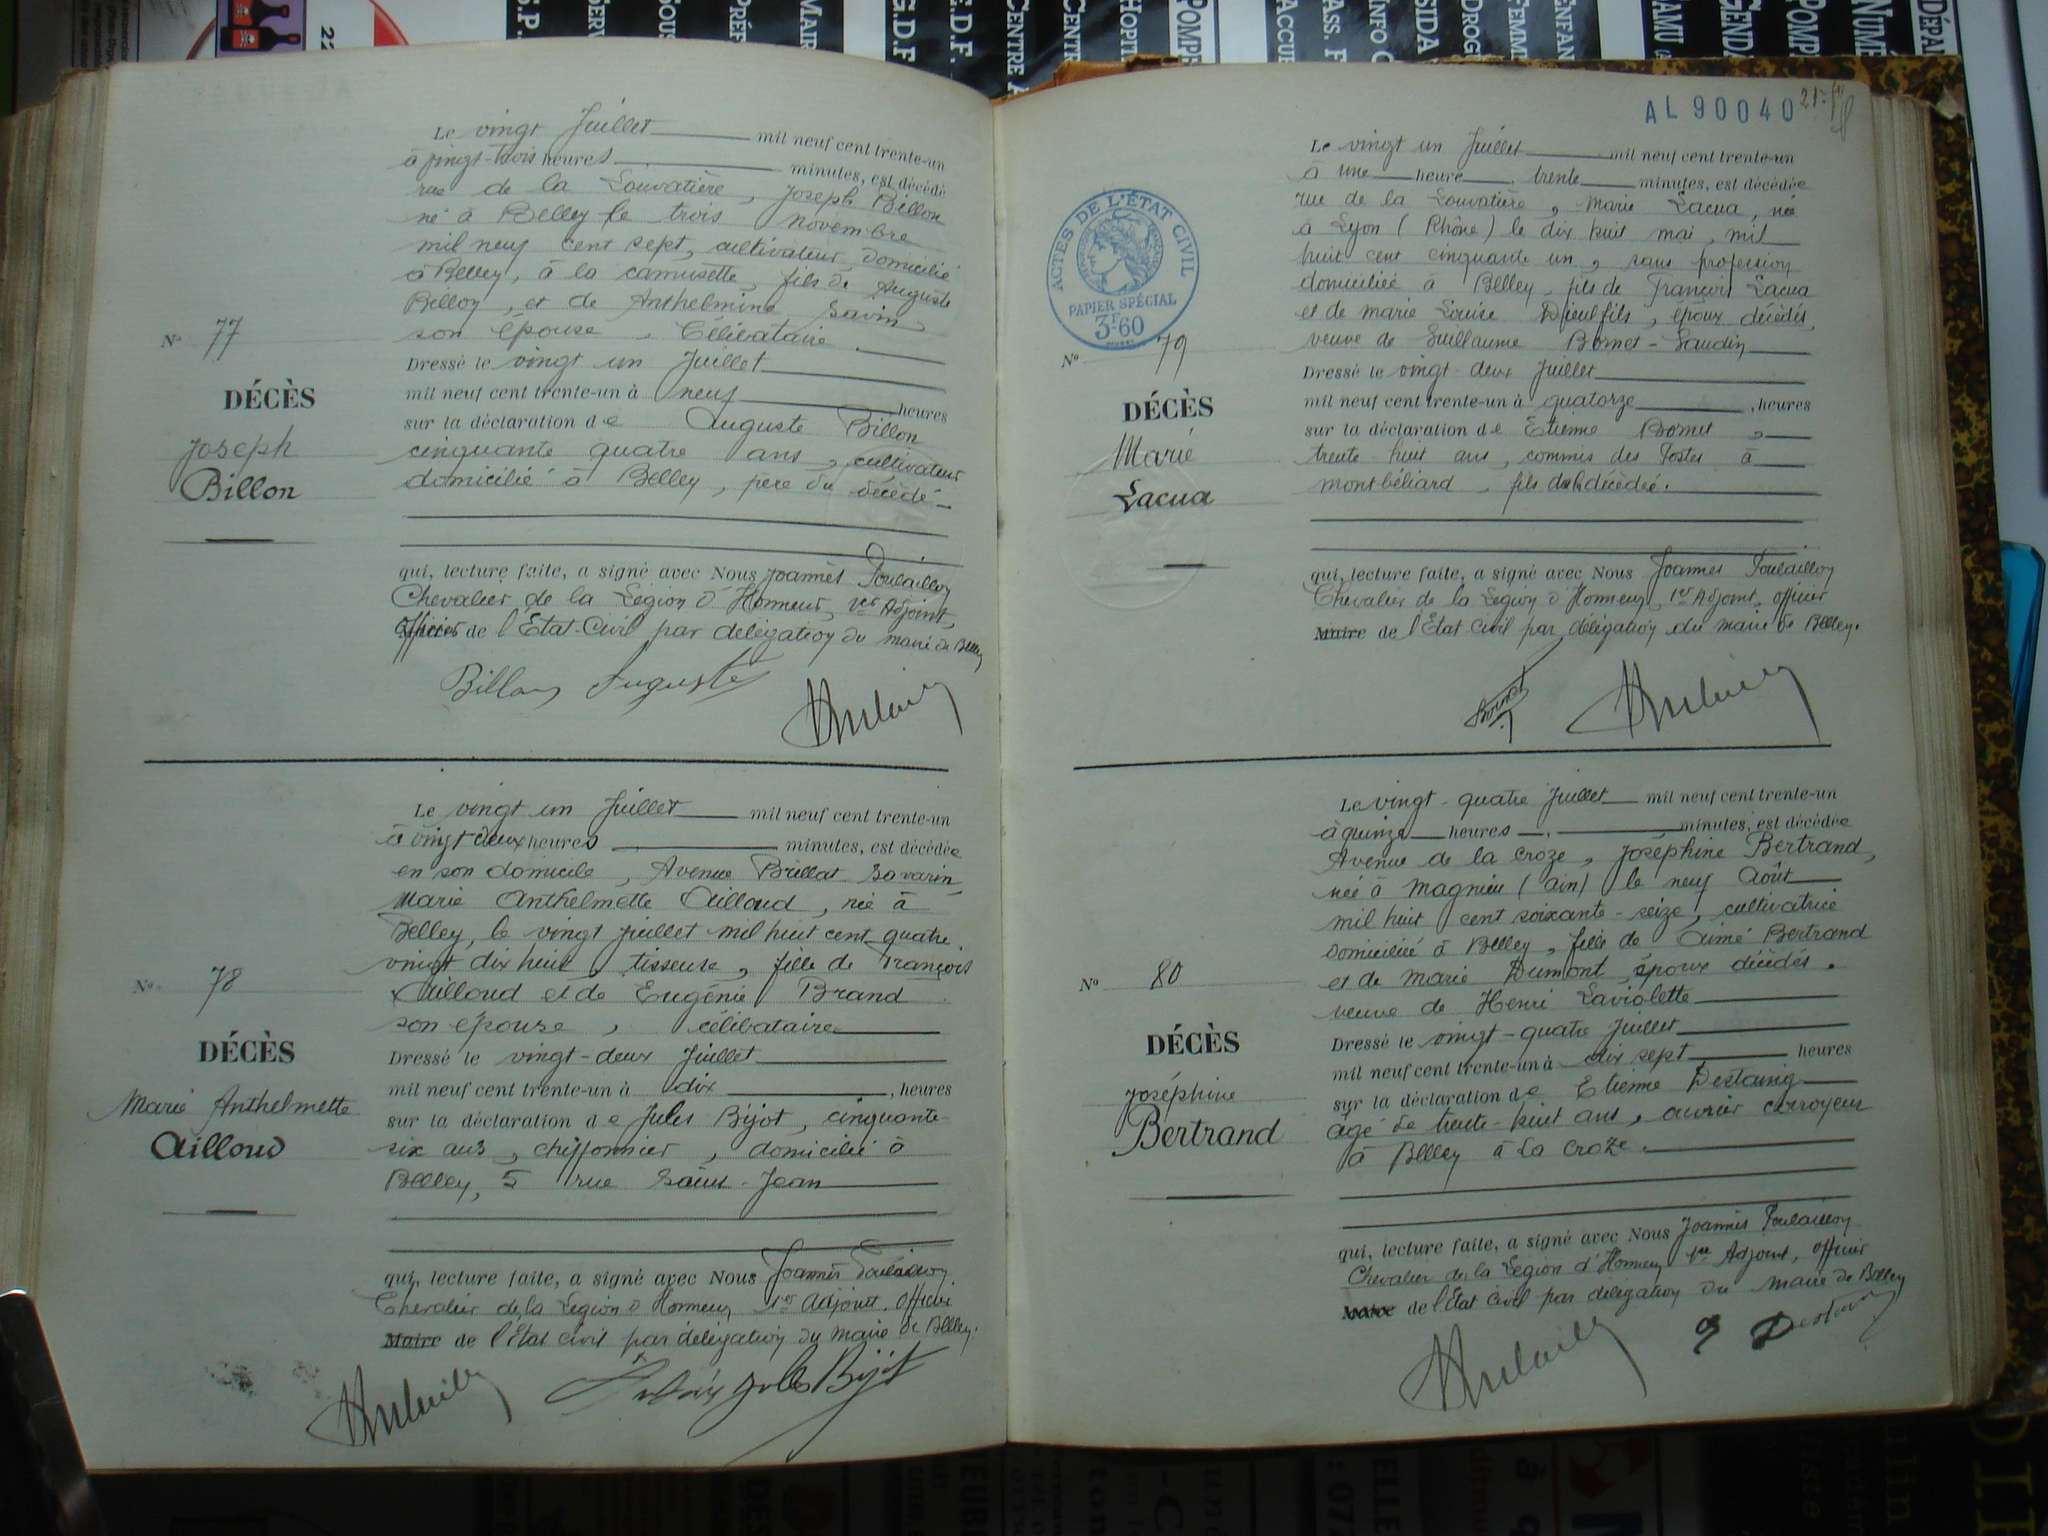 Le vingt Juillet mil neuf cent trente-un
à vingt-trois heures minutes, est décédé
rue de la Louvatière, Joseph Billon
né à Belley le trois novembre
mil neuf cent sept, cultivateur, domicilié
à Belley, à la camusette, fils de Auguste
Billon, et de Anthelmine Savin
son épouse, Célibataire.
N° 77
DÉCÈS
Joseph
Billon
Dressé le vingt un Juillet
mil neuf cent trente-un à neuf heures
sur la déclaration de Auguste Billon
cinquante quatre ans, cultivateur
domicilié à Belley, père du décédé
qui, lecture faite, a signé avec Nous Joannès Poulaillon
Chevalier de la Légion d'Honneur, 1er Adjoint,
officier de l'Etat-Civil par délégation du maire de Belley
Billon Auguste
Le vingt un Juillet mil neuf cent trente-un
à vingt deux heures minutes, est décédée
en son domicile, Avenue Brillat Savarin
Marie Anthelmette Ailloud, née à
Belley, le vingt juillet mil huit cent quatre
vingt dix huit, tisseuse, fille de François
Ailloud et de Eugénie Brand
son épouse, célibataire
N° 78
DÉCÈS
Marie Anthelmette
Ailloud
Dressé le vingt-deux Juillet
mil neuf cent trente-un à dix, heures
sur la déclaration de Jules Bijot, cinquante-
six ans, chiffonnier, domicilié à
Belley, 5 rue Saint-Jean
qui, lecture faite, a signé avec Nous Joannès Poulaillon
Chevalier de la Légion d'Honneur, 1er Adjoint, officier
Maire de l'Etat civil par délégation du maire de Belley.
Jules Bijot
AL 90040
Le vingt un Juillet mil neuf cent trente-un
à une heure trente minutes, est décédée
rue de la Louvatière, Marie Lacua, né
à Lyon (Rhône) le dix huit mai, mil
huit cent cinquante un, sans profession
domiciliée à Belley, fils de François Lacua
et de marie Louise Dieulfils, époux décédés,
veuve de Guillaume Bornet-Gaudin
ACTES DE L'ÉTAT CIVIL
PAPIER SPÉCIAL
3F60
N° 79
DÉCÈS
Marie
Lacua
Dressé le vingt-deux Juillet
mil neuf cent trente-un à quatorze, heures
sur la déclaration de Etienne Bornet,
trente huit ans, commis des Postes à
montbéliard, fils de la décédée.
qui, lecture faite, a signé avec Nous Joannès Poulaillon
Chevalier de la Légion d'Honneur, 1er Adjoint, officier
Maire de l'Etat Civil par délégation du maire de Belley.
Bornet
Le vingt-quatre Juillet mil neuf cent trente-un
à quinze heures minutes, est décédée
Avenue de la Croze, Joséphine Bertrand,
née à Magnieu (Ain) le neuf Août
mil huit cent soixante-seize, cultivatrice
domiciliée à Belley, fille de Aimé Bertrand
et de Marie Dumont, époux décédés.
veuve de Henri Laviolette
N° 80
DÉCÈS
Joséphine
Bertrand
Dressé le vingt-quatre Juillet
mil neuf cent trente-un à dix sept heures
sur la déclaration de Etienne Destaing
âgé de trente-huit ans, ouvrier corroyeur
à Belley à La Croze.
qui, lecture faite, a signé avec Nous Joannès Poulaillon
Chevalier de la Légion d'Honneur 1er Adjoint, officier
Maire de l'Etat civil par délégation du maire de Belley